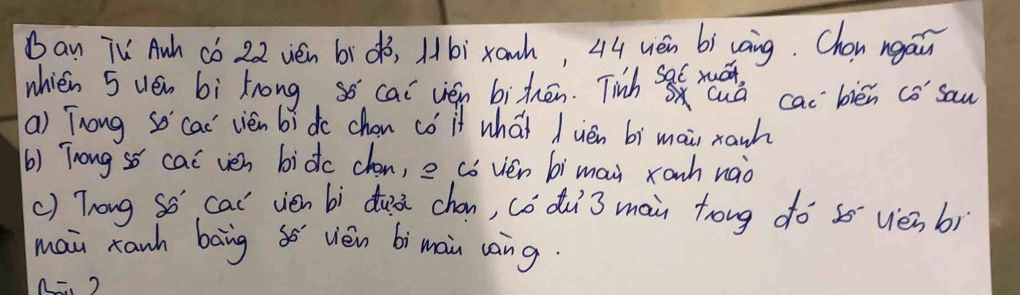 Bạn Tú Anh có 22 viên bi đỏ, 11 bi xanh, 44 viên bi vàng. Chọn ngẫu
nhiên 5 viên bi trong số các viên bi trên. Tính sác xuất của các biến cố sau
a) Trong số các viên bi đc chọn có ít nhất 1 viên bi màu xanh
b) Trong số các viên bi đc chọn, ko có viên bi màu xanh nào
c) Trong số các viên bi được chọn, có đủ 3 màu trong đó số viên bi
màu xanh bằng số viên bi màu vàng.
Bài 2